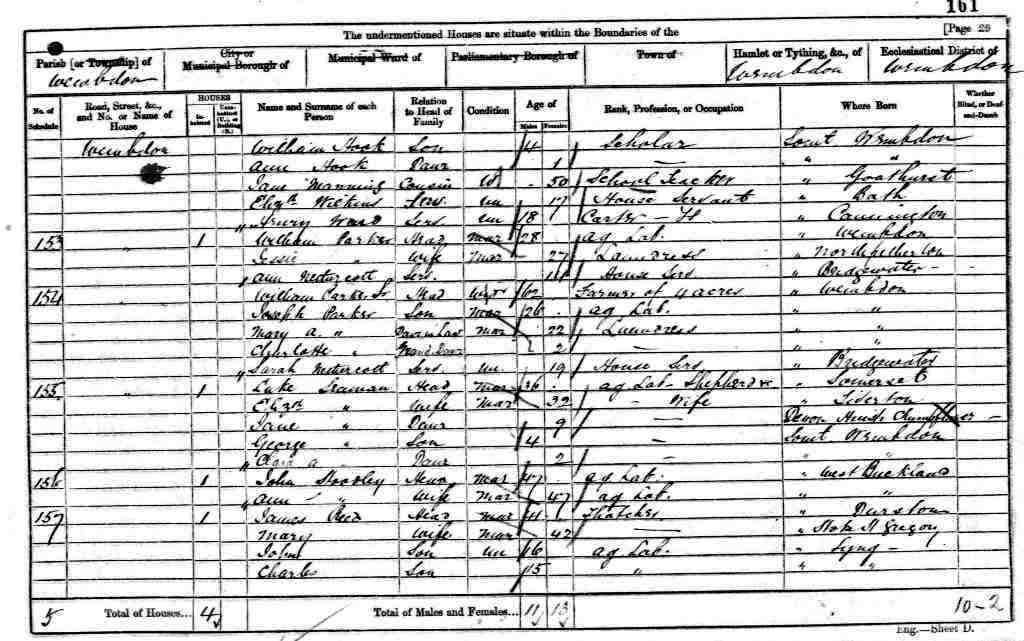 161
The undermentioned Houses are situate within the Boundaries of the [Page 25
Parish [or Township] of City or Municipal Borough of Municipal Ward of Parliamentary Borough of Town of Hamlet or Tything, &c., of Ecclesiastical District of
Wembdon Wembdon Wembdon
No. of Schedule Road, Street, &c., and No. or Name of House HOUSES Inhabited Uninhabited (U.), or Building (B.) Name and Surname of each Person Relation to Head of Family Condition Age of Males Females Rank, Profession, or Occupation Where Born Whether Blind, or Deaf-and-Dumb
Wembdon William Hook Son 4 Scholar Somt Wembdon
Ann Hook Daur 1 — " "
Jane Manning Cousin 50 School Teacher " Goathurst
Elizth Wilkins Serv. Un 17 House Servant " Bath
Henry Ward Serv. Un 18 Carter " Cannington
153 " 1 William Parker Head Mar 28 Ag Lab. " Wembdon
Jessie " Wife Mar 27 Laundress " North Petherton
Ann Nethercott Serv. House Serv " Bridgewater
154 " 1 William Parker Sr Head Widr 62 Farmer of 4 acres " Wembdon
Joseph Parker Son Mar 26 Ag Lab. " "
Mary A. " Daur in Law Mar 22 Laundress " "
Charlotte " Grand Daur 2 — " "
Sarah Nethercott Serv. Un 19 House Serv " Bridgewater
155 " 1 Luke Seaman Head Mar 36 Ag Lab Shepherd " Somerset
Elizth " Wife Mar 32 " Wife
Jane " Daur 9 — Devon
George " Son 4 — Somt Wembdon
Clara A Daur 2 — " "
156 1 John Head Mar 47 Ag Lab. " West Buckland
Ann " Wife Mar 47 Ag Lab. " "
157 1 James Reed Head Mar 41 Thatcher " Durston
Mary Wife Mar 42 — " Stoke St Gregory
John Son Un 16 Ag Lab. " Lyng
Charles Son 15 " " "
5 Total of Houses... 4 Total of Males and Females... 11 13 10-2
Eng.—Sheet D.